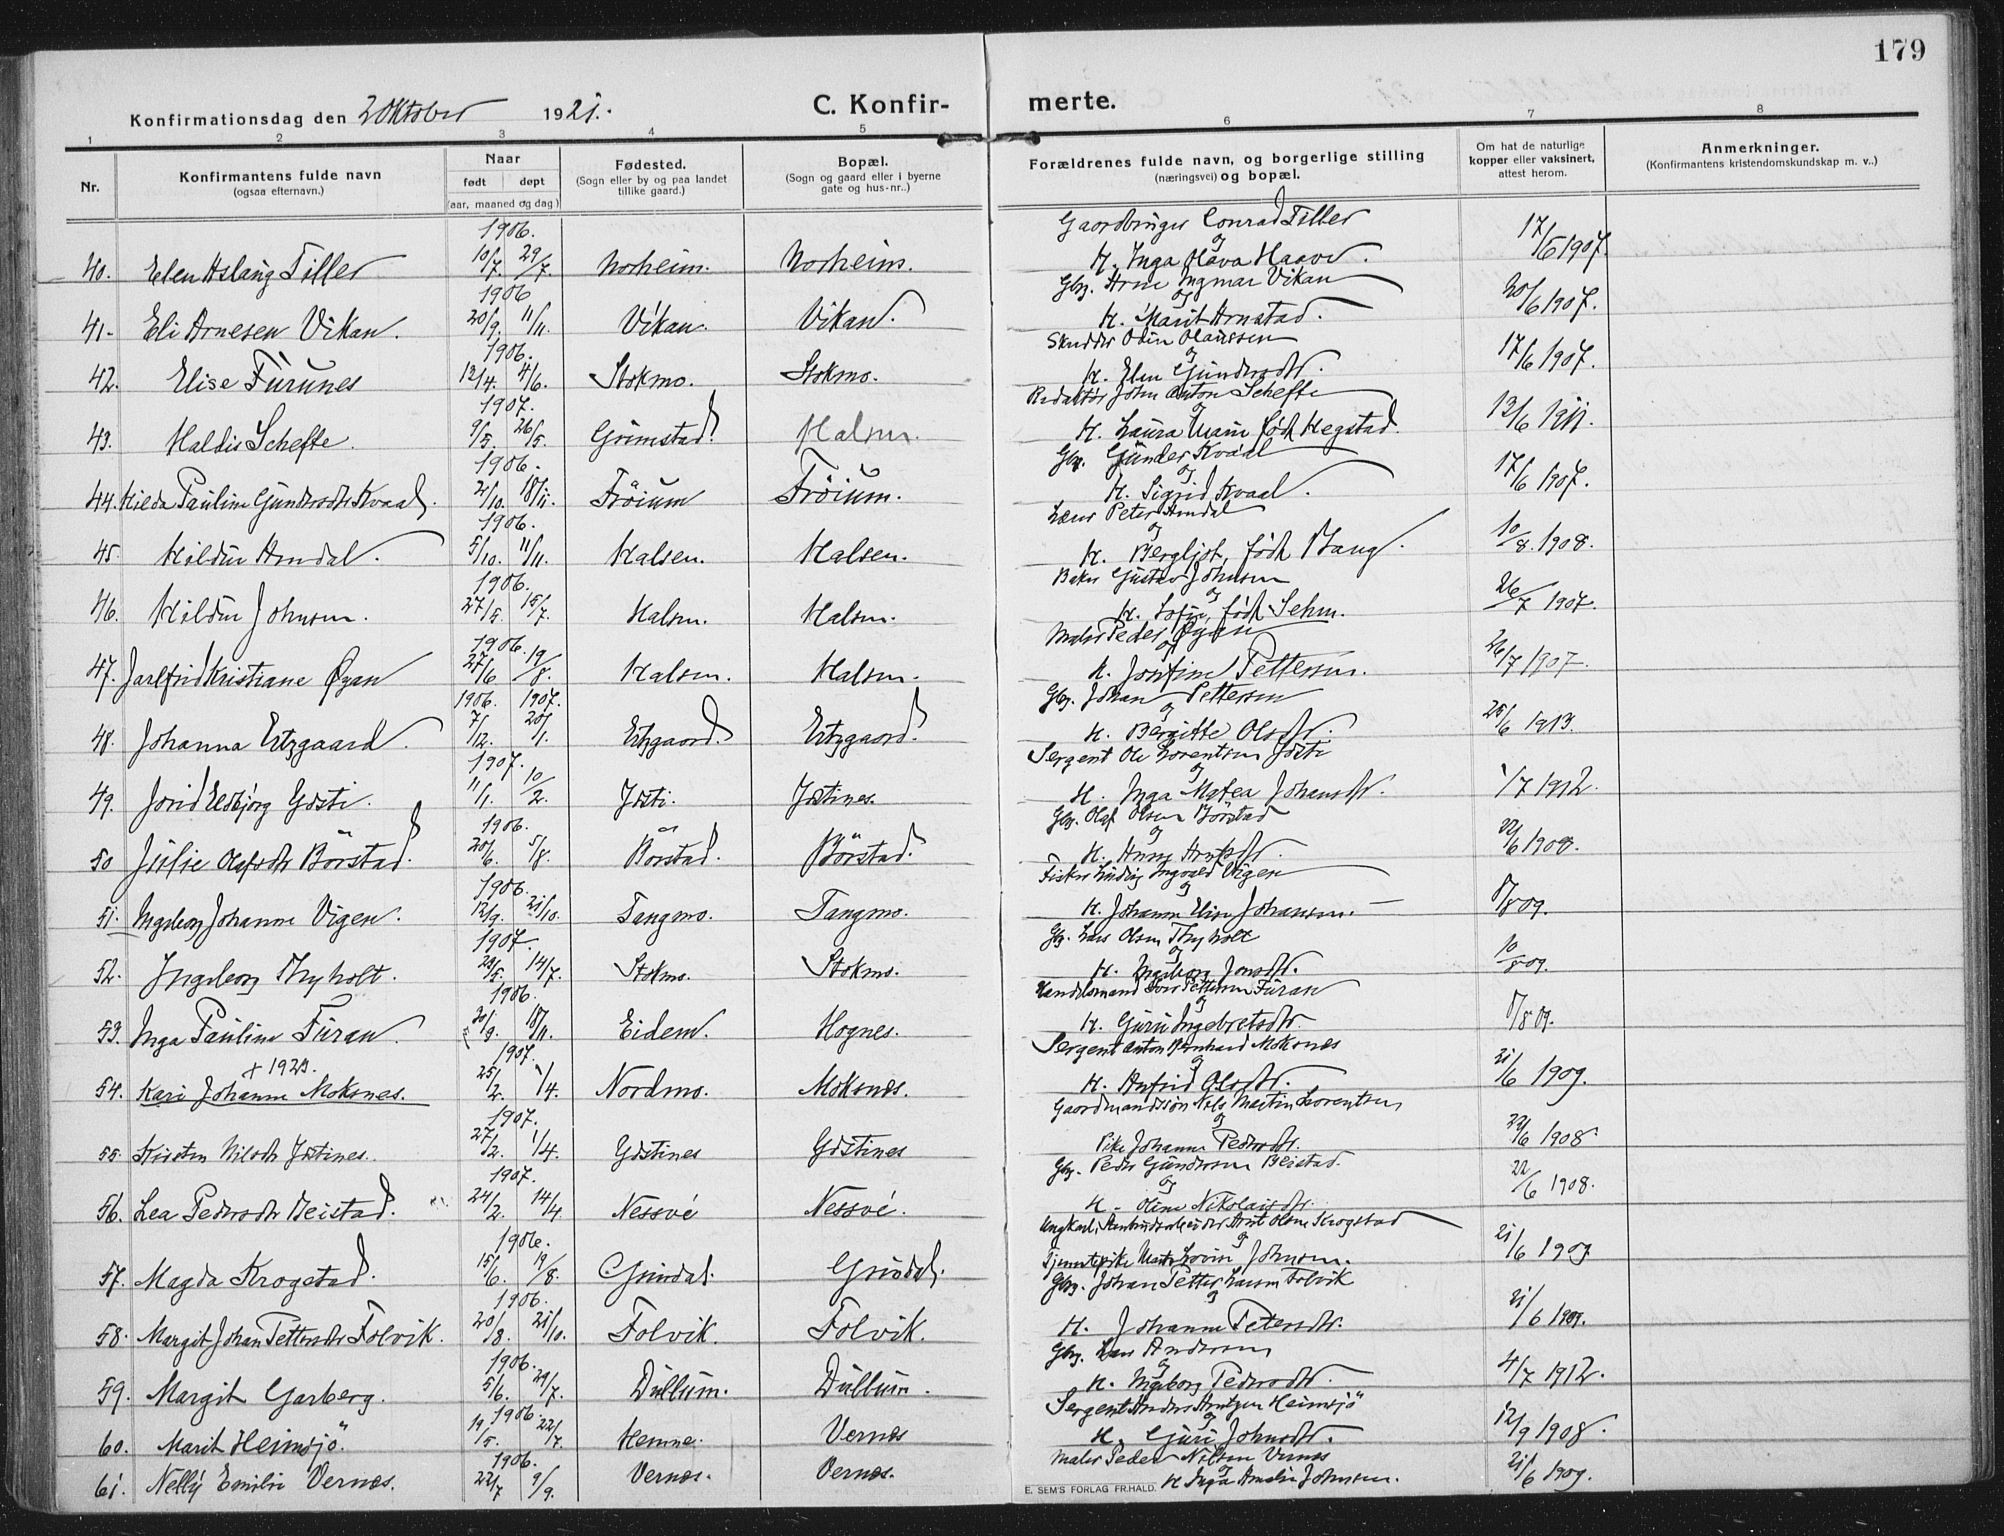 179
Konfirmationsdag den 2 Oktober 1921.
C. Konfir- merte.
1 2 3 4 5 6 7 8
Nr.
Konfirmantens fulde navn
(ogsaa efternavn.)
Naar
født døpt
(aar, maaned og dag)
Fødested.
(Sogn eller by og paa landet
tillike gaard.)
Bopæl.
(Sogn og gaard eller i byerne
gate og hus-nr..)
Forældrenes fulde navn, og borgerlige stilling
(næringsvei) og bopæl.
Om hat de naturlige
kopper eller vaksinert,
attest herom.
Anmerkninger.
(Konfirmantens kristendomskundskap m. v..)
1906. Gaardbruger Conrad Tiller
og
40. Elen Aslaug Tiller 10/7. 29/7. Norheim. Norheim. H. Inga Olava Haave. 17/6 1907.
1906 Gbr. Arne Ingmar Vikan
og
41. Eli Arnesen Vikan. 20/9. 11/11. Vikan. Vikan. H. Marit Arnstad. 20/6 1907.
1906. Skrædder Odin Olaussen
og
42. Elise Furunes 12/4. 4/6. Stokmo. Stokmo. H. Elen Gundersdtr. 17/6 1907.
1907. Redaktør John Anton Schefte
og
43. Haldis Schefte. 9/5. 26/5. Grimstad. Halsen. H. Laura Marie født Hegstad. 12/6 1911.
1906. Gbr. Gunder Kvaal
og
44. Hilda Pauline Gundersdtr Kvaal. 2/10. 18/11. Frøium Frøium. H. Sigrid Kvaal. 17/6 1907.
1906. Lærer Peter Arndal
og
45. Hildur Arndal. 5/10. 11/11. Halsen. Halsen. H. Bergljot, født Bang. 10/8. 1908.
1906. Baker Gustav Johnsen
og
46. Hildur Johnsen. 27/5. 15/7. Halsen. Halsen. H. Sofie, født Sehm. 26/7 1907.
1906. Maler Peder Øyan
og
47. Jarlfrid Kristiane Øyan 27/6 19/8. Halsen. Halsen. H. Josefine Pettersen. 26/7 1907.
1906. 1907. Gbr. Johan Pettersen
og
48. Johanna Ertzgaard. 7/12. 20/1. Ertzgaard. Ertzgaard. H. Bergitte Olsdtr. 25/6 1913.
1907. Sergent Ole Lorentsen Ydsti
og
49. Jorid Elsbjørg Ydsti. 11/1. 10/2. Ydsti. Ydstines. H. Inga Matea Johansdtr. 1/7 1912.
1906. Gbr. Olaf Olsen Börstad
og
50 Julie Olafsdtr Börstad. 20/6. 5/8. Börstad. Börstad. H. Anna 22/6 1908.
1906. Fisker Ludvig Ingvald Vigen
og
51. Ingeborg Johanne Vigen. 12/9. 21/10. Tangmo. Tangmo. H. Johanne Elise Johansen. 9/8 09.
1907. Gbr. Lars Olsen Thyholt
og
52. Ingeborg Thyholt. 28/5. 14/7. Stokmo. Stokmo. H. Ingeborg Jonsdtr. 10/8 09.
1906. Handelsmand Iver Pettersen Furan
og
53. Inga Pauline Furan. 30/9. 18/11. Eidem. Hognes. H. Guru Ingebretsdtr. 9/8 09.
1907. Sergent Anton Bernhard Moksnes
+ 1923. og
54. Kari Johanne Moksnes. 25/2. 1/4. Nordmo. Moksnes. H. Anfrid Olsdtr. 21/6 1909.
1907. Gaardmandssøn Nils Martin Lorentsen
og
55. Kirsten Nilsdtr Ydstines. 27/2. 1/4. Ydstines Ydstines Pike Johanna Pedersdtr. 22/6 1908.
1907. Gbr. Peder Gundersen Beistad.
og
56. Lea Pedersdtr Beistad. 24/2. 14/4 Nessvé Nessvé. H. Oline Nikolaisdtr. 22/6 1908.
1906. Ungkarl, Ant Olsen Krogstad
og
57. Magda Krogstad. 15/6. 19/8. Grindal. Grindal. Tjenestepike Johnsen. 21/6 1909
1906. Gbr. Johan Petter Larsen Folvik
og
58. Margit Johan Pettersdtr Folvik. 20/8. 21/10. Folvik. Folvik. H. Johanne Petersdtr. 21/6 1909.
1906. Gbr. Lars Andersen
og
59. Margit Garberg. 5/6. 29/7. Dullum. Dullum. H. Ingeborg Pedersdtr. 4/7 1912.
1906. Sergent Anders Arntzen Heimsjö
og
60. Marit Heimsjö. 19/5. 22/7. Hemne. Vernes H. Guri Johnsdtr. 12/9 1908.
1906. Maler Peder Nilsen Vernes
og
61. Nelly Emilie Vernes. 22/7 9/9. Vernes. Vernes. H Inga Amalie Johnsen. 21/6 1909.
E. SEM'S FORLAG FR.HALD.